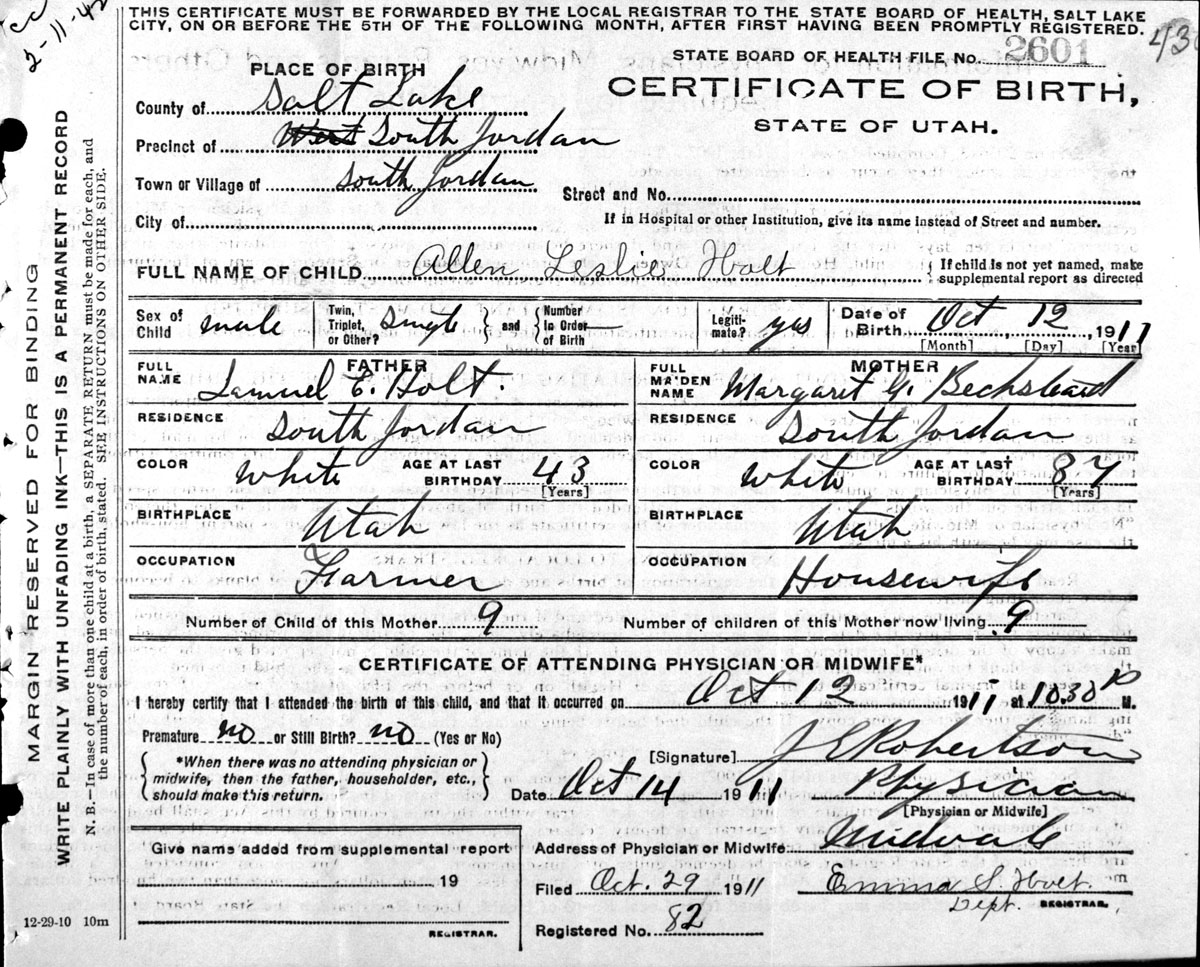 THIS CERTIFICATE MUST BE FORWARDED BY THE LOCAL REGISTRAR TO THE STATE BOARD OF HEALTH, SALT LAKE
CITY, ON OR BEFORE THE 5TH OF THE FOLLOWING MONTH, AFTER FIRST HAVING BEEN PROMPTLY REGISTERED.
cc
2-11-42
43
STATE BOARD OF HEALTH FILE No. 2601
CERTIFICATE OF BIRTH,
STATE OF UTAH.
PLACE OF BIRTH
County of Salt Lake
Precinct of West South Jordan
Town or Village of South Jordan
Street and No.
City of
If in Hospital or other Institution, give its name instead of Street and number.
FULL NAME OF CHILD Allen Leslie Holt
If child is not yet named, make
supplemental report as directed
Sex of Child male
Twin, Triplet, or Other? single and Number in Order of Birth
Legitimate? yes
Date of Birth Oct 12, 1911
[Month] [Day] [Year]
FATHER
FULL NAME Samuel E. Holt.
RESIDENCE South Jordan
COLOR White AGE AT LAST BIRTHDAY 43
[Years]
BIRTHPLACE Utah
OCCUPATION Farmer
MOTHER
FULL MAIDEN NAME Margaret Bechstead
RESIDENCE South Jordan
COLOR White AGE AT LAST BIRTHDAY 37
[Years]
BIRTHPLACE Utah
OCCUPATION Housewife
Number of Child of this Mother 9
Number of children of this Mother now living 9
CERTIFICATE OF ATTENDING PHYSICIAN OR MIDWIFE*
I hereby certify that I attended the birth of this child, and that it occurred on Oct 12 1911 at 10.30 P M.
Premature no or Still Birth? no (Yes or No)
*When there was no attending physician or
midwife, then the father, householder, etc.,
should make this return.
[Signature] J E Robertson
Date Oct 14 1911 Physician
[Physician or Midwife]
Give name added from supplemental report
19
REGISTRAR.
Address of Physician or Midwife Midvale
Filed Oct. 29 1911 Emma S. Holt.
Dept. REGISTRAR.
Registered No. 82
12-29-10 10m
MARGIN RESERVED FOR BINDING
WRITE PLAINLY WITH UNFADING INK—THIS IS A PERMANENT RECORD
N. B.—In case of more than one child at a birth, a SEPARATE RETURN must be made for each, and
the number of each, in order of birth, stated. SEE INSTRUCTIONS ON OTHER SIDE.